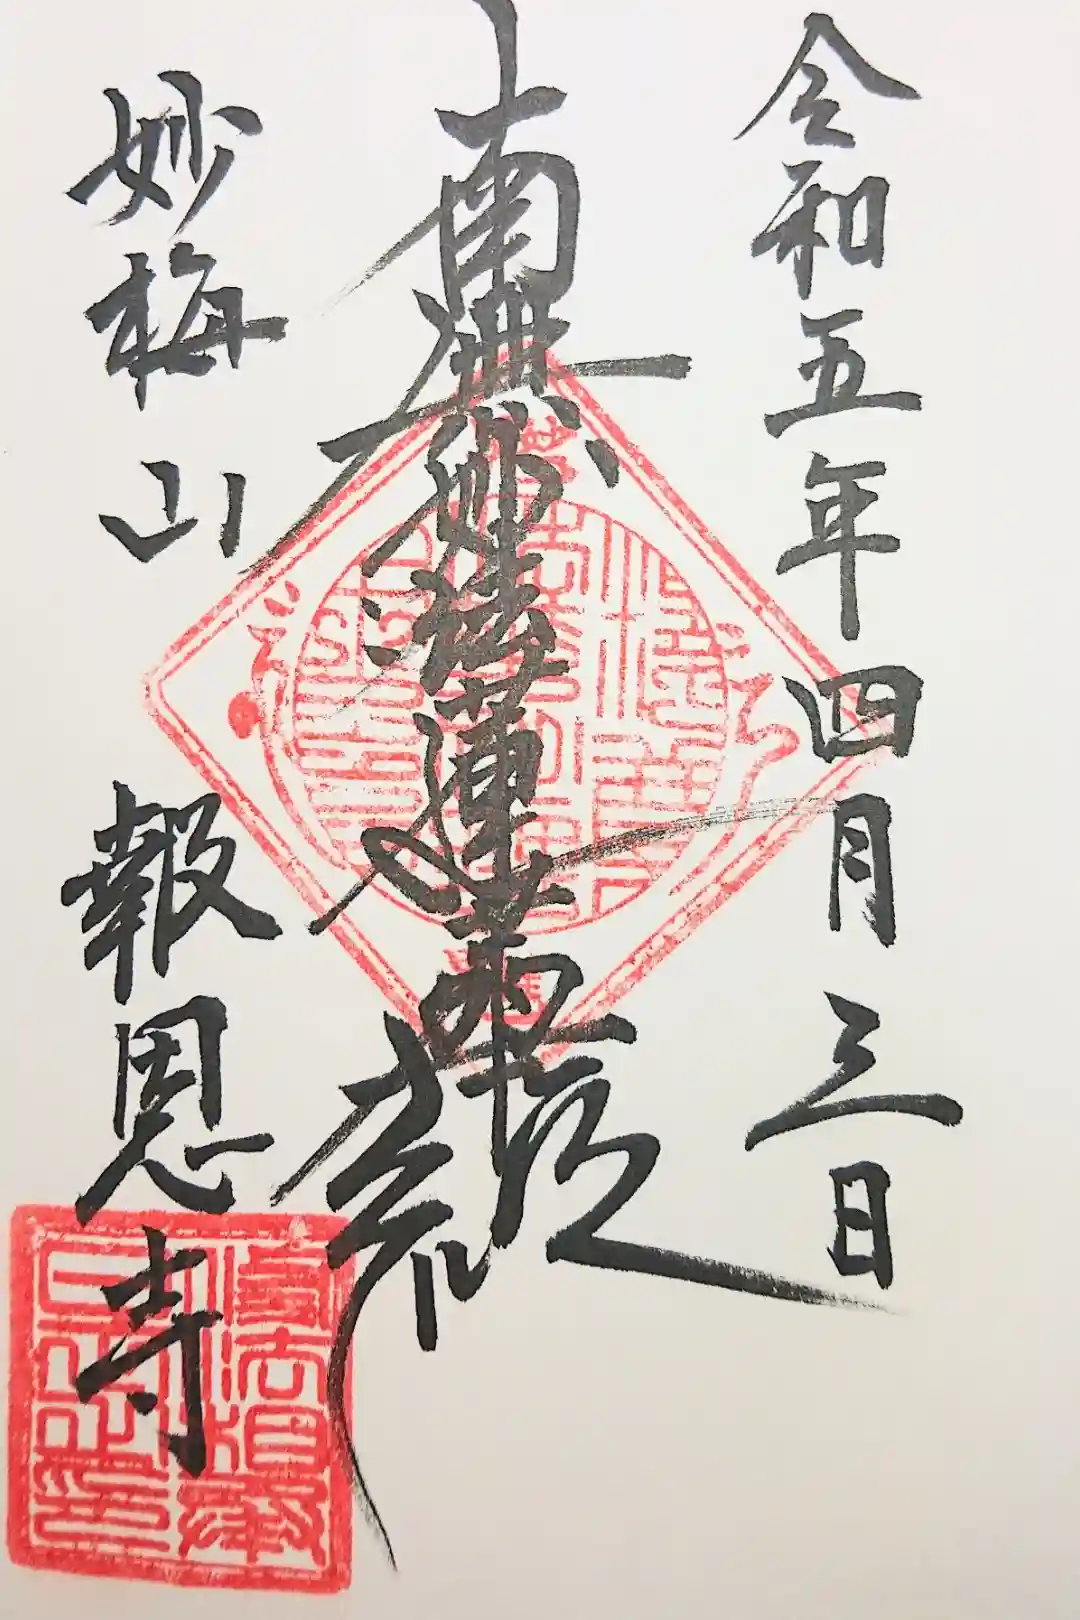 令和五年四月三日
南無妙法蓮華経
妙梅山 報恩寺